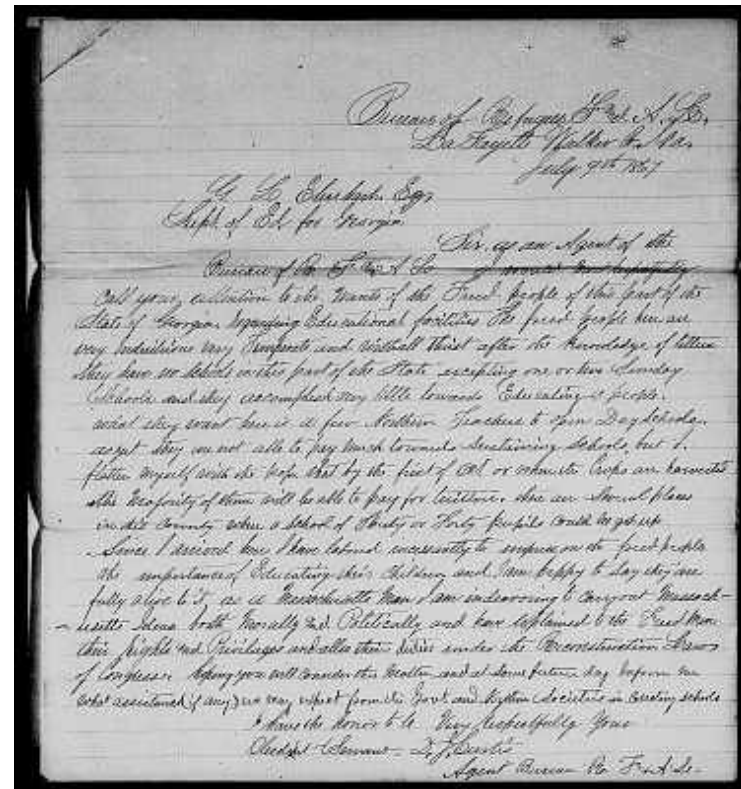 Bureau of Refugees F'd. A. L.
LaFayette Walker Co. Ga.
July 9th 1867
G L Eberhart. Esqr
Supt. of Ed. for Georgia
Sir, as an Agent of the
Bureau of Re F & A La I would most respectfully
call your attention to the wants of the Freed people of this part of the
State of Georgia regarding Educational facilities The freed people here are
very industrious very Temperate and withall thirst after the knowledge of letters
they have no schools in this part of the State excepting one or two Sunday
Schools and they accomplish very little towards Educating people.
what they want here is a few Northern Teachers to open Day schools.
as yet they are not able to pay much towards sustaining schools, but I
flatter myself with the hope that by the first of Oct or when the Crops are harvested
the Majority of them will be able to pay for tuition. there are several places
in this County where a school of Thirty or Forty pupils could be got up
Since I arrived here I have labored incessantly to impress on the freed people
the importance of Educating their Children and I am happy to say they are
fully alive to it, as a Massachusetts Man I am endeavoring to carry out Massach-
usetts Ideas both Morally and Politically and have explained to the Freed Men
their Rights and Privileges and also their duties under the Reconstruction Laws
of Congress. Hoping you will consider this Matter and at some future day inform me
what assistance (if any) we may expect from the Govt and Societies in erecting schools
I have the honor to be Very Respectfully Your
Obedt Servant D. J. Curtis
Agent Bureau Re F & A La